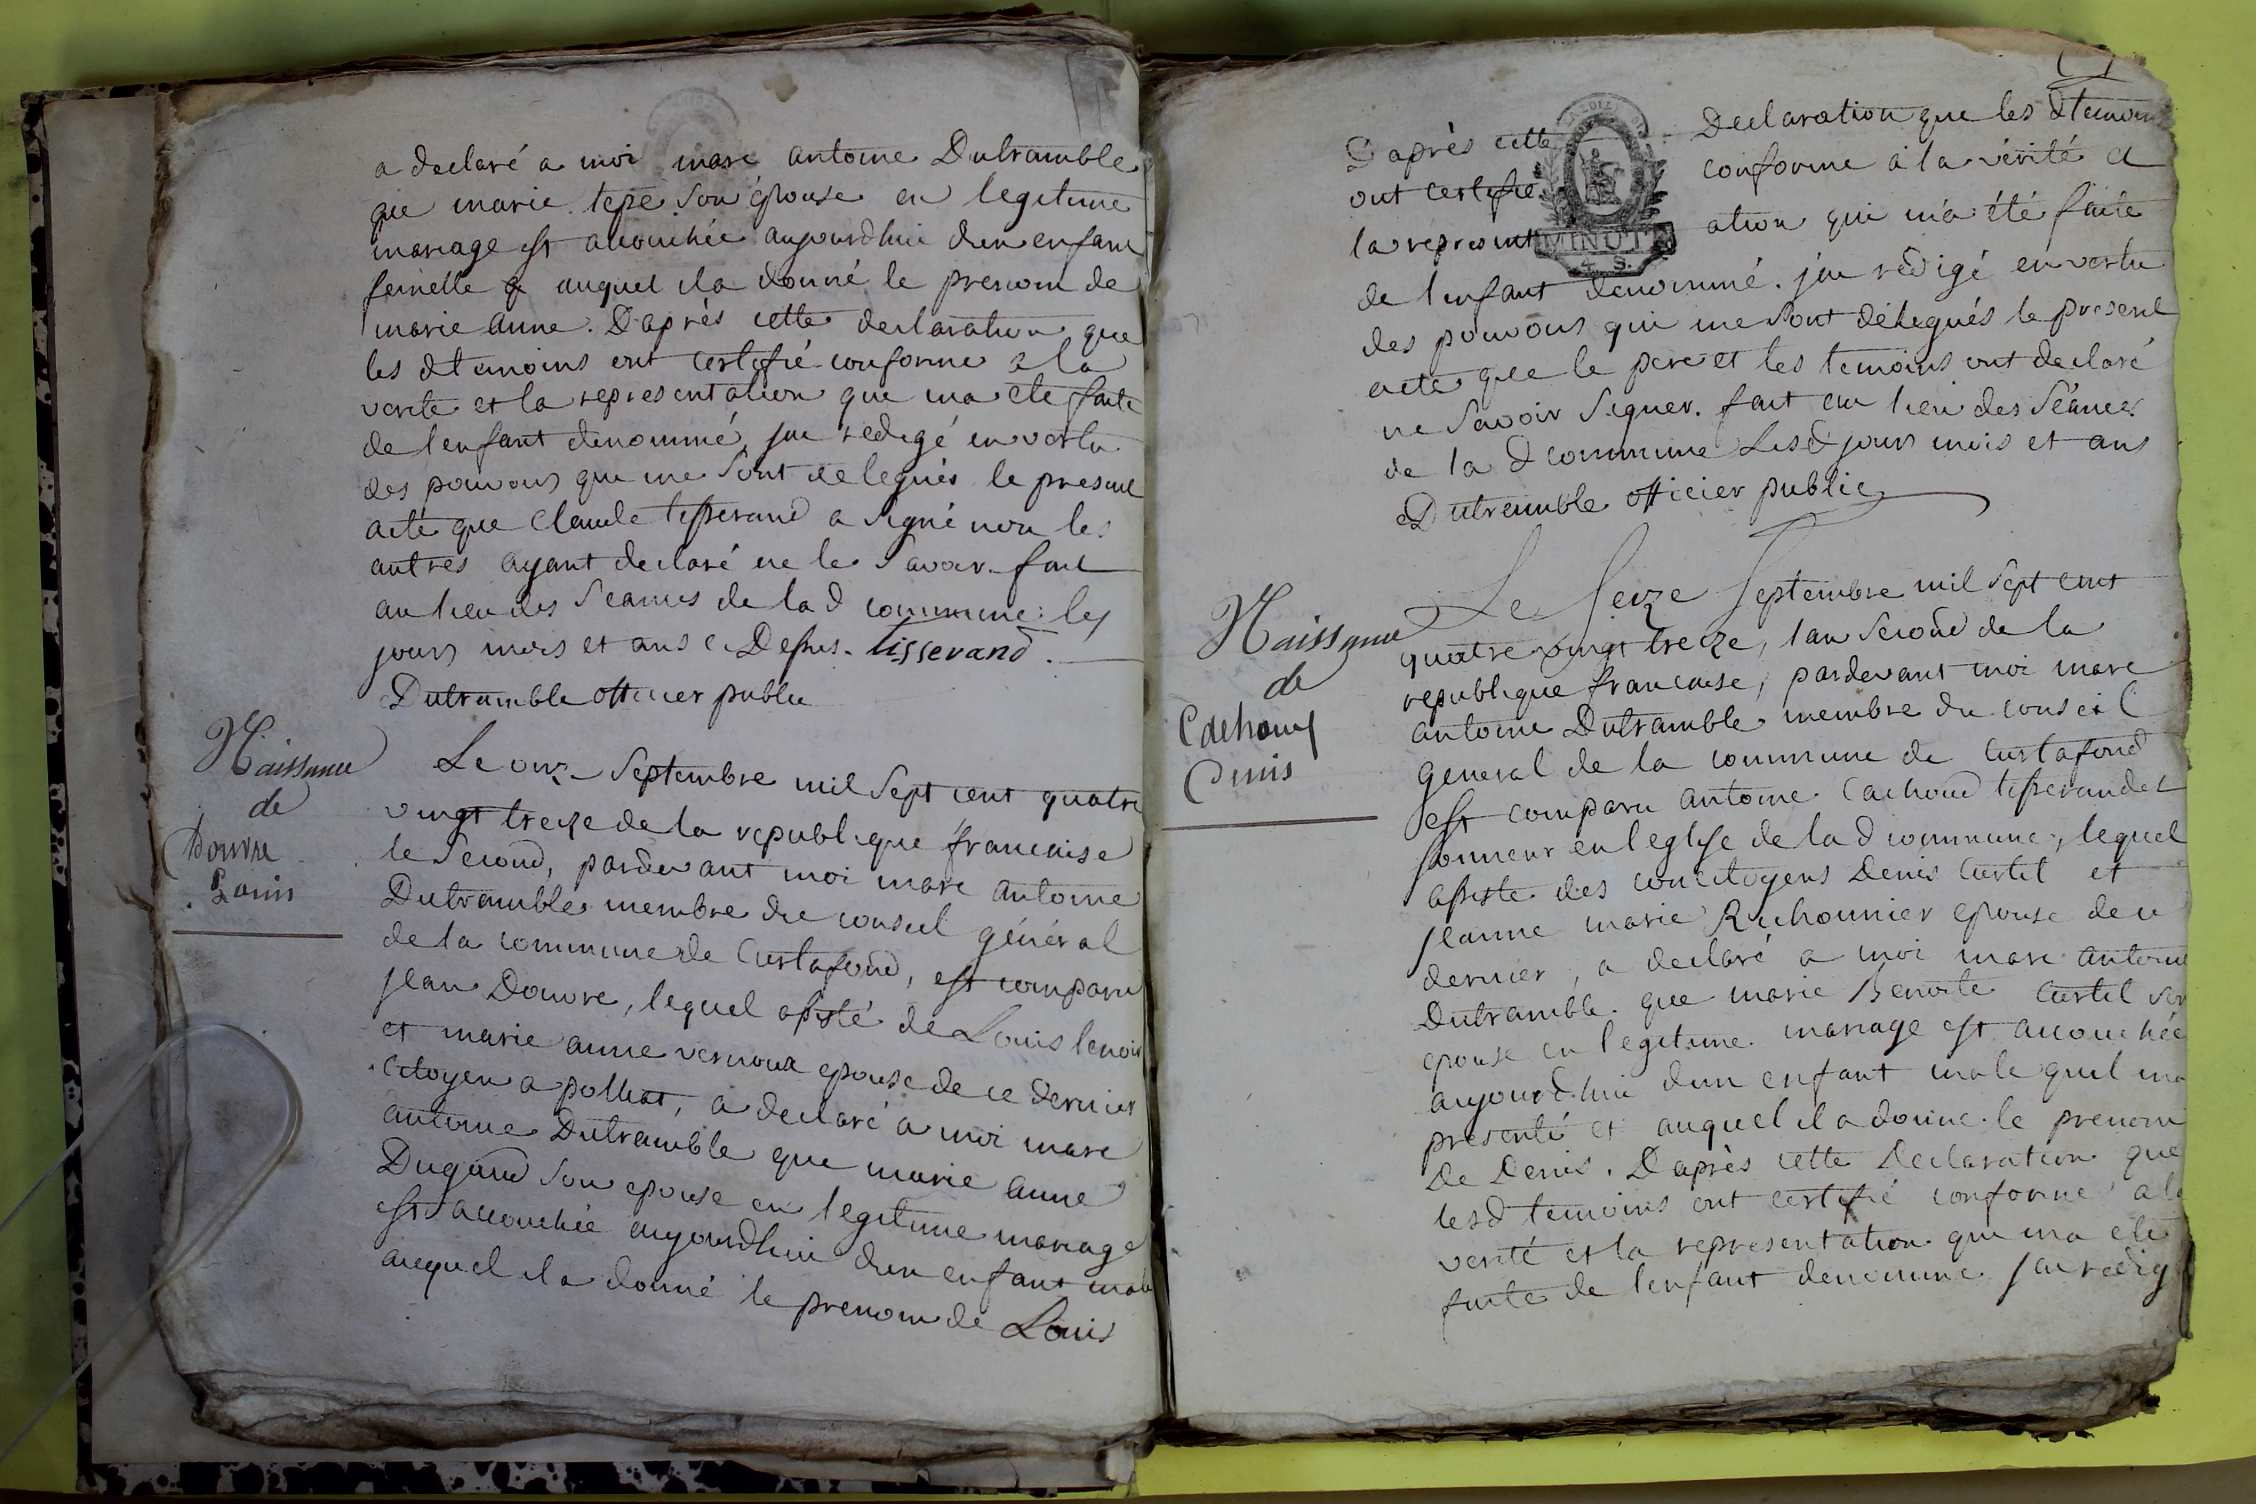 a declaré a moi marc antoine Dutramble
que marie tepe son épouse en legitime
mariage est accouchée aujourdhui dun enfant
femelle auquel il a donné le prenom de
marie anne. D'après cette declaration que
les dtemoins ont certifié conforme a la
verité et la representation que ma ete faite
de lenfant denommé, jai redigé en vertu
des pouvoirs que me sont delegués le present
acte que Claude tisserand a signé non les
autres ayant declaré ne le savoir. fait
au lieu des seances de lad commune les
jours mois et ans Dessus. tisserand.
Dutramble officier public
Naissance
de
Douvre
Louis
Le onze septembre mil sept cent quatre
vingt treize de la republique francaise
le second, pardevant moi marc antoine
Dutramble membre du conseil général
de la commune de Curtafond, est comparu
jean Douvre, lequel assisté de Louis lenoir
et marie anne vernoux epouse de ce dernier
citoyen a polliat, a declaré a moi marc
antoine Dutramble que marie anne
Dugand son epouse en legitime mariage
est accouchée aujourdhui dun enfant male
auquel il a donné le prenom de Louis
D'après cette Declaration que les dtemoins
ont certifié conforme à la vérité et
la represent ation qui m'a été faite
de lenfant denommé. j'ai rédigé en vertu
des pouvoirs qui me sont délegués le present
acte que le pere et les temoins ont declaré
ne savoir signer. fait au lieu des séances
de la d commune Lesd jours mois et ans
Dutramble officier public
Naissance
de
Cachoud
Denis
Le seize septembre mil sept cent
quatre vingt treize, lan second de la
republique francaise, pardevant moi marc
antoine Dutramble membre du conseil
general de la commune de Curtafond
est comparu antoine Cachoud tisserand et
sonneur en leglise de la d commune, lequel
assisté des concitoyens Denis Curtil et
jeanne marie Ruchonnier epouse de ce
dernier, a declaré a moi marc antoine
Dutramble que marie Benoite Curtil son
epouse en legitime mariage est accouchée
aujourd'hui dun enfant male quil ma
presenté et auquel il a donné le prenom
de Denis. D'après cette Declaration que
lesd temoins ont certifié conforme a la
verité et la representation que ma ete
faite de lenfant denommé jai redig